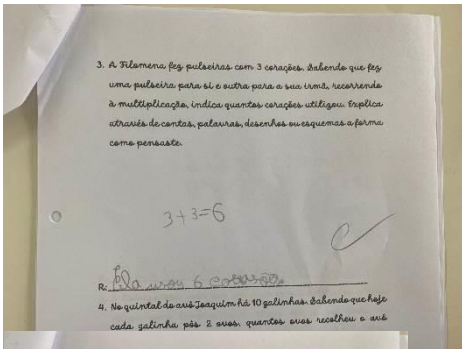 3. A Filomena fez pulseiras com 3 corações. Sabendo que fez
uma pulseira para si e outra para a sua irmã, recorrendo
à multiplicação, indica quantos corações utilizou. Explica
através de contas, palavras, desenhos ou esquemas a forma
como pensaste.
3+3=6
R: Ela usou 6 corações
4. No quintal do avô Joaquim há 10 galinhas. Sabendo que hoje
cada galinha pôs 2 ovos, quantos ovos recolheu o avô